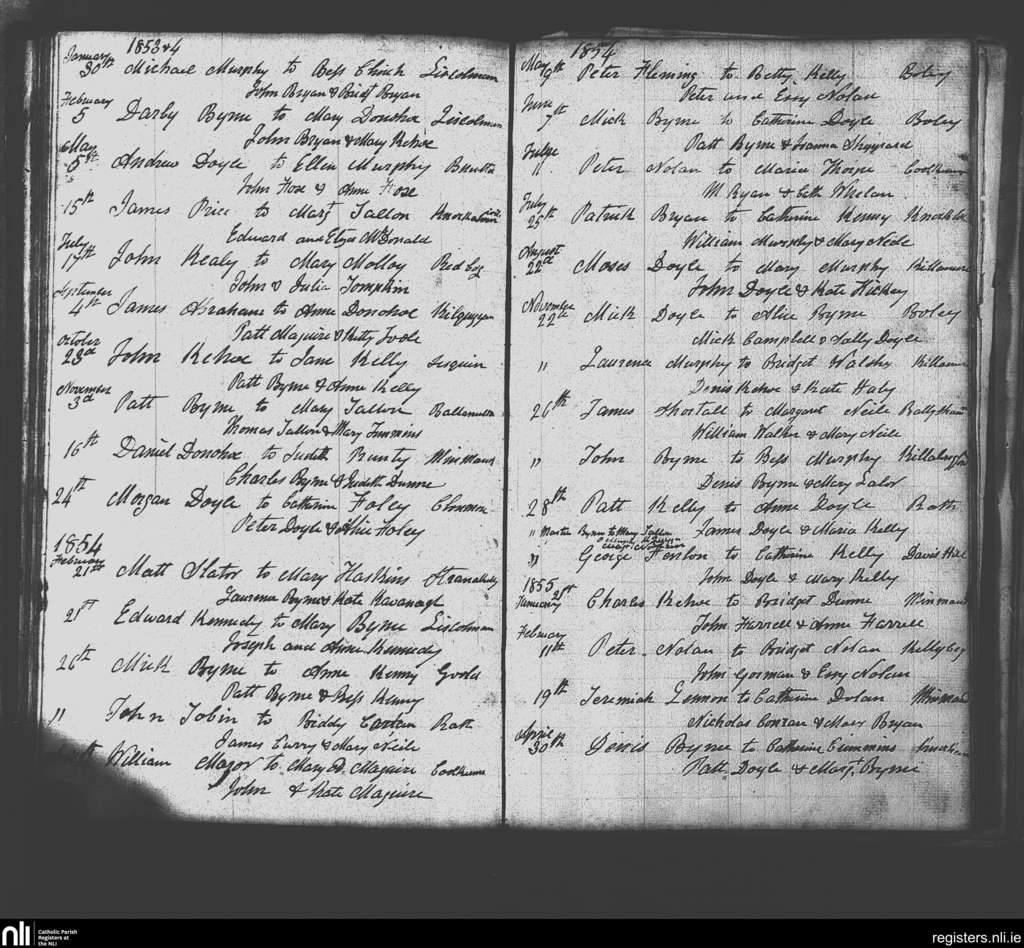 1853 & 4
January 30th Michael Murphy to Bess Liscolman
John Bryan & Bridt Bryan
February 5 Darby Byrne to Mary Donohoe Liscolman
John Bryan & Mary Kehoe
May 5th Andrew Doyle to Ellen Murphy
John Fose & Anne Fose
15th James Price to Margt Tallon
Edward and Eliza McDonald
July 17th John Kealy to Mary Molloy Red bog
John & Julia Tompkin
September 4th James Abraham to Anne Donohoe
Patt Maguire & Kitty Toole
October 23d John Kehoe to Jane Kelly
Patt Byrne & Anne Kelly
November 3d Patt Byrne to Mary Tallon
Thomas Tallon & Mary Timmins
16th Daniel Donohoe to Judith Minmaus
Charles Byrne & Judith Dunne
24th Morgan Doyle to Catherine Foley
Peter Doyle & Alice Foley
1854
February 21st Matt Slator to Mary Haskins
Laurence Byrne & Kate Kavanagh
21st Edward Kennedy to Mary Byrne Liscolman
Joseph and Anne Kennedy
26th Mick Byrne to Anne Kenny
Patt Byrne & Bess Kenny
" John Tobin to Biddy Rath
James Curry & Mary Neile
William to Mary Maguire
John & Kate Maguire
1854
May 9th Peter Fleming to Betty Kelly Boley
Peter and Essy Nolan
June 7th Mick Byrne to Catherine Doyle Boley
Patt Byrne & Joanna Sheppard
Peter Nolan to Maria Thorpe
M Ryan & Cath Whelan
July 25th Patrick Bryan to Catherine Kenny
William Murphy & Mary Neile
August 22d Moses Doyle to Mary Murphy
John Doyle & Kate Hickey
November 22th Mick Doyle to Alice Byrne Boley
Mick Campbell & Sally Doyle
" Laurence Murphy to Bridget Walshe
Denis Kehoe & Kate
26th James Shortall to Margaret Neile
William Walker & Mary Neile
" John Byrne to Bess Murphy
Denis Byrne & Mary Lalor
28th Patt Kelly to Anne Doyle Rath
James Doyle & Maria Kelly
" Martin Byrne to Mary Tallon
" George Fenlon to Catherine Kelly Davis Hill
John Doyle & Mary Kelly
1855
January 21st Charles Kehoe to Bridget Dunne Minmaus
John Farrell & Anne Farrell
February 11th Peter Nolan to Bridget Nolan
John Gorman & Essy Nolan
19th Jeremiah Lennon to Catherine Dolan
Nicholas Conran & Mary Bryan
April 30th Denis Byrne to Catherine Cummins
Patt Doyle & Margt Byrne
nli
Catholic Parish
Registers at
the NLI
registers.nli.ie